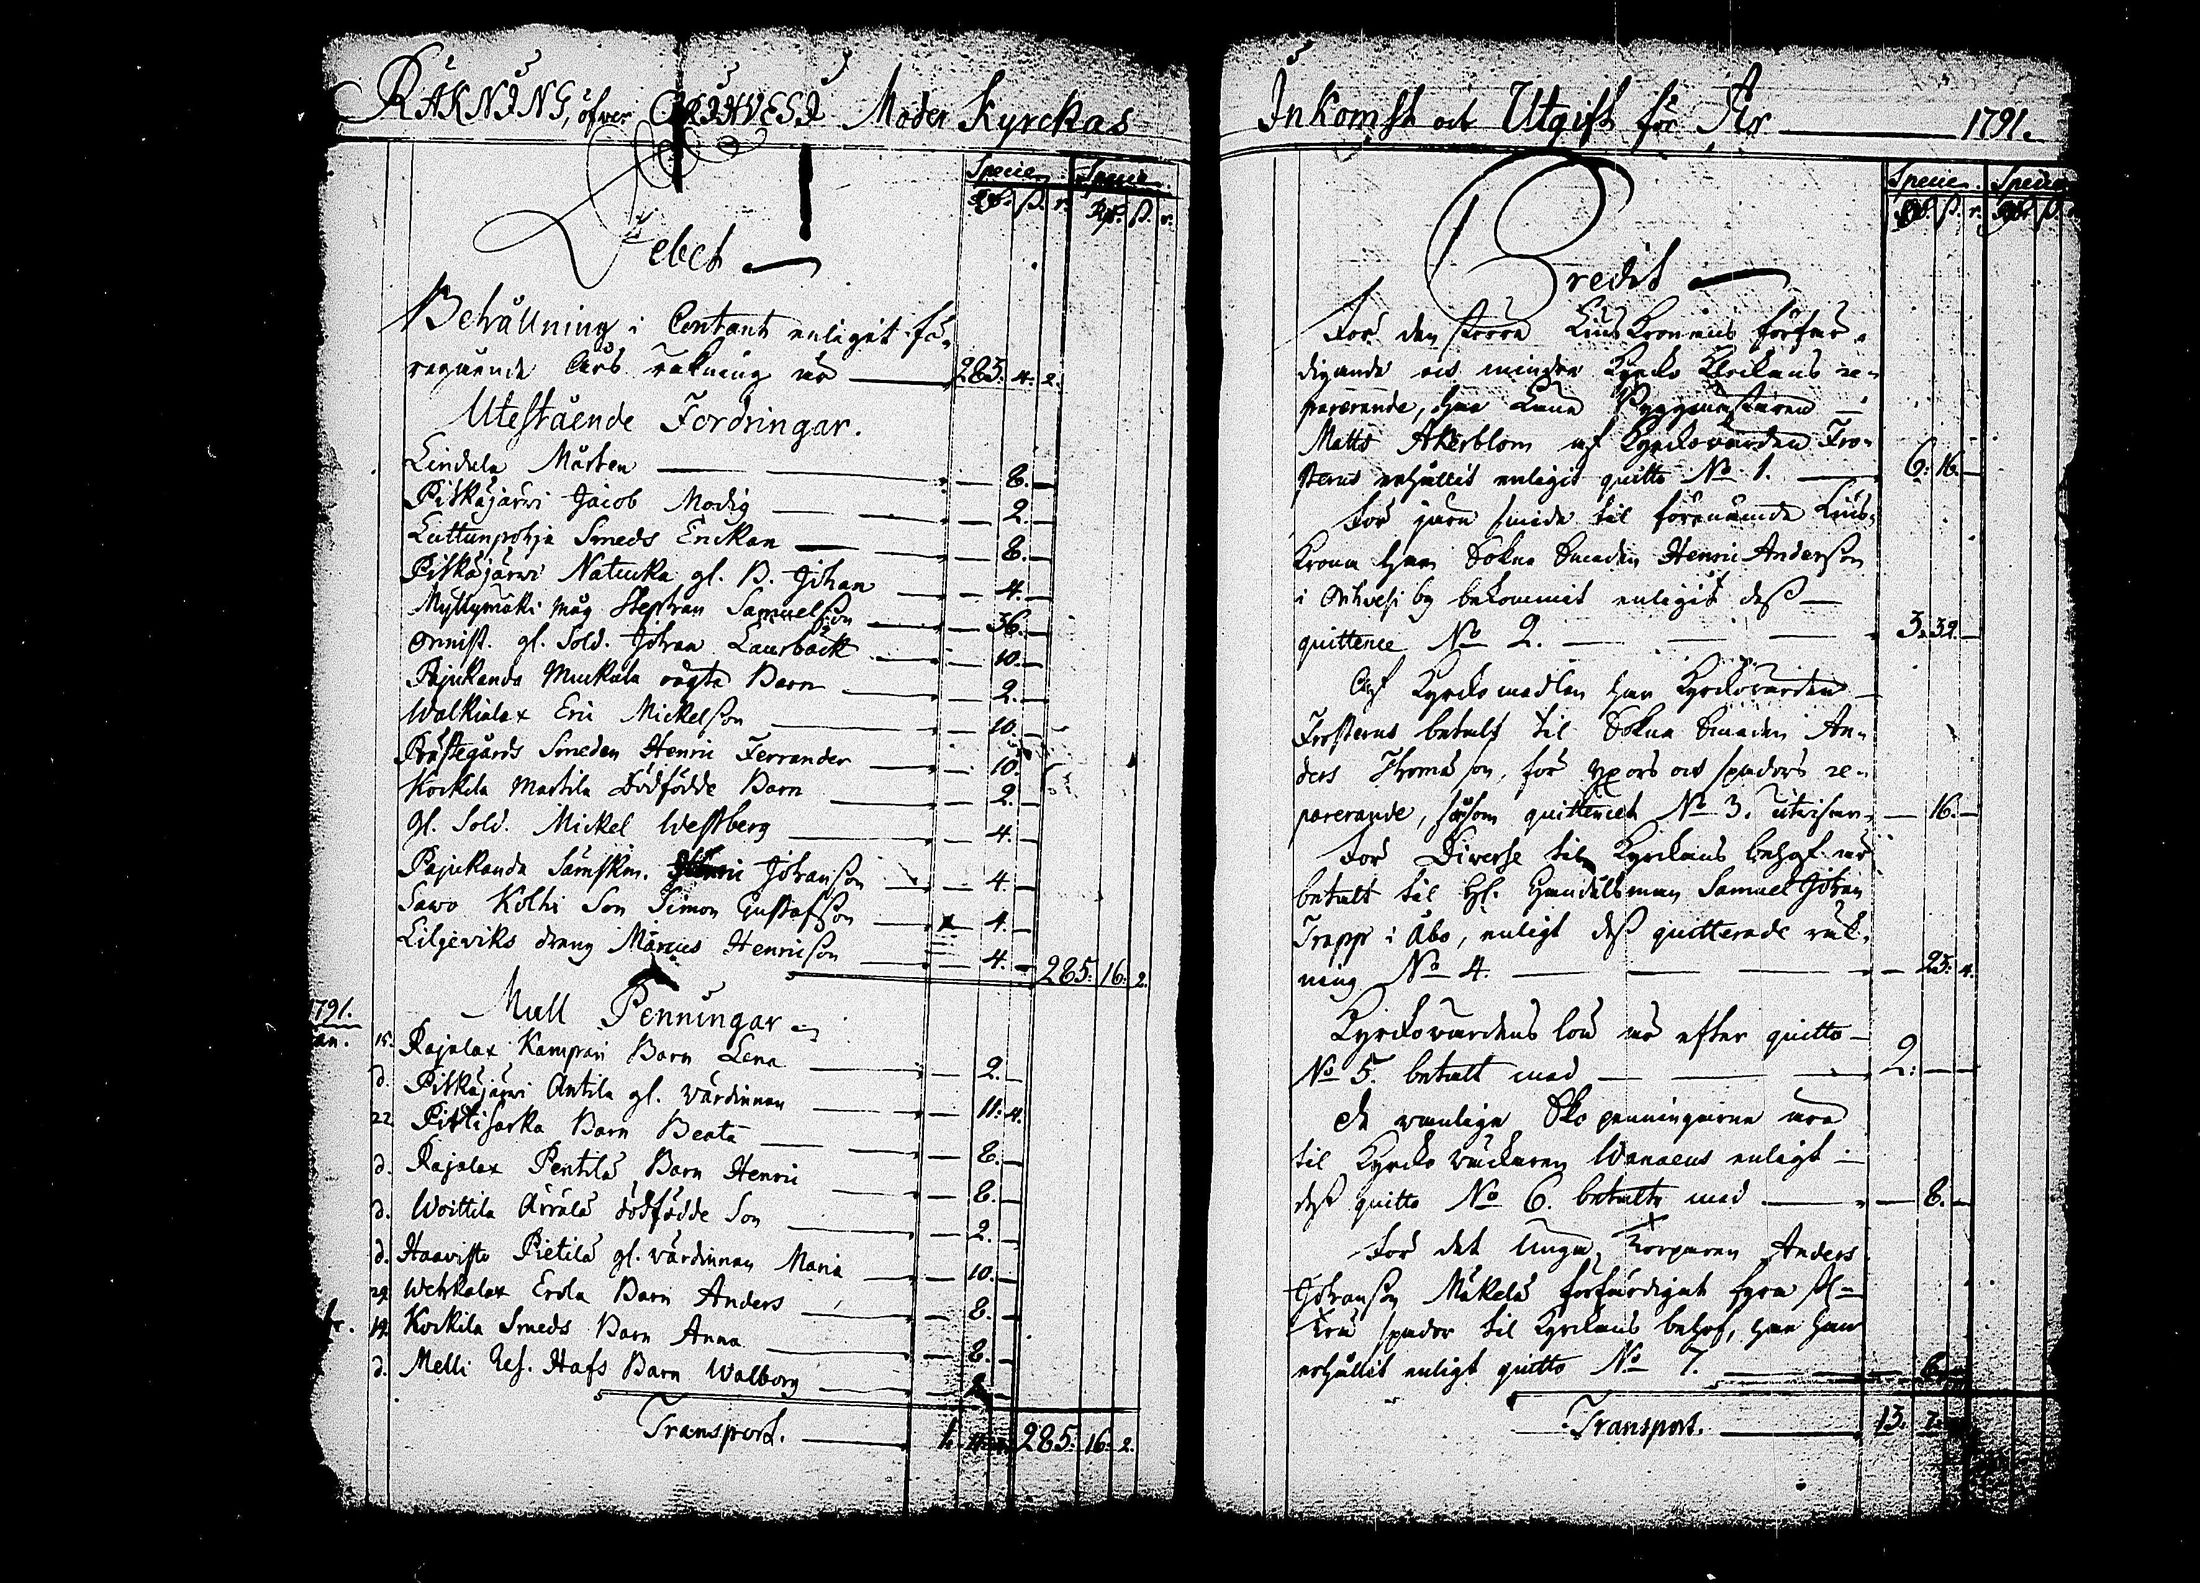 RÄKNING, öfver ORIHVESI Moder Kyrckas
Specie. Specie.
Rdr. ß. r. Rdr. ß. r.
Debet
Behållning i Contant enligit fö-
regående Års räkning är 283. 4. 2.
Utestående Fordringar.
Lindula Mårten — 8. —
Pitkäjärwi Jacob Modig — 2. —
Luttunpohja Smeds Enckan — 8. —
Pitkäjärwi Natucka gl. B. Johan — 4. —
Myllymäki måg Stephan Samuelson — 36. —
Onnist. gl. Sold. Johan Laurbäck — 10. —
Pajukanda Muckala oägta Barn — 2. —
Walkialax Eric Mickelson — 10. —
Prästegårds Smeden Henric Ferrander — 10. —
Kockila Martila Dödfödde Barn — 2. —
Gl. Sold. Mickel Westberg — 4. —
Pajukanda Sämskm. Johanson — 4. —
Sawo Kolhi Son Simon Gustafson — 4. —
Liljeviks dräng Marcus Henricson — 4. — 285. 16. 2.
Mull Penningar
1791.
Jan. 15. Rajalax Kampari Barn Lena — 2. —
d. Pitkäjärwi Antila gl. värdinnan — 11. 4.
22. Pittisarka Barn Beata — 8. —
d. Rajalax Pentilä Barn Henric — 8. —
d. Woittila Ärrälä dödfödde Son — 2. —
d. Haavisto Pietilä gl. värdinnan Maria — 10. —
29. Wehkalax Erola Barn Anders — 8. —
14. Kockila Smeds Barn Anna — 8. —
d. Melli Barn Walborg
Transport. 1. 285. 16. 2.
Inkomst och Utgift för År 1791.
Specie. Specie.
Rdr. ß. r. Rdr. ß.
Credit
För den större Ljus Kronens förfär-
digande och mindre Kyrcko Klockans re-
parerande, har Byggmästaren
Matts Åkerblom af Kyrckovärden Fro-
sterus erhållit enligit quitto No 1. 6. 16. —
För järn smide til förenämde Ljus-
Krona har Sokne Smeden Henric Anderson
i Orihvesi by bekommit enligit dess
quittence No 2. 3. 32. —
Af Kyrcko medlen har Kyrckovärden
Frosterus betalt til Sokne Smeden An-
ders Thomason, för yxors och spadors re-
parerande, såsom quittencet No 3. utvisar — 16. —
För Diverse til Kyrckans behof är
betalt til Hr. Handelsman Samuel Johan
Trapp i Åbo, enligt dess quitterade räk-
ning No 4. — 23. 4.
Kyrckovärdens lön är efter quitto
No 5. betalt med 2. — —
De vanlige Sko penningarne äro
til Kyrcko väckaren Wanaeus enligt
dess quitto No 6. betalte med — 8. —
För det unga Torparen Anders
Johanson Mäkelä förfärdigat fyra st.
spador til Kyrckans behof, har han
erhållit enligt quitto No 7. — 8.
Transport. 13. 7.